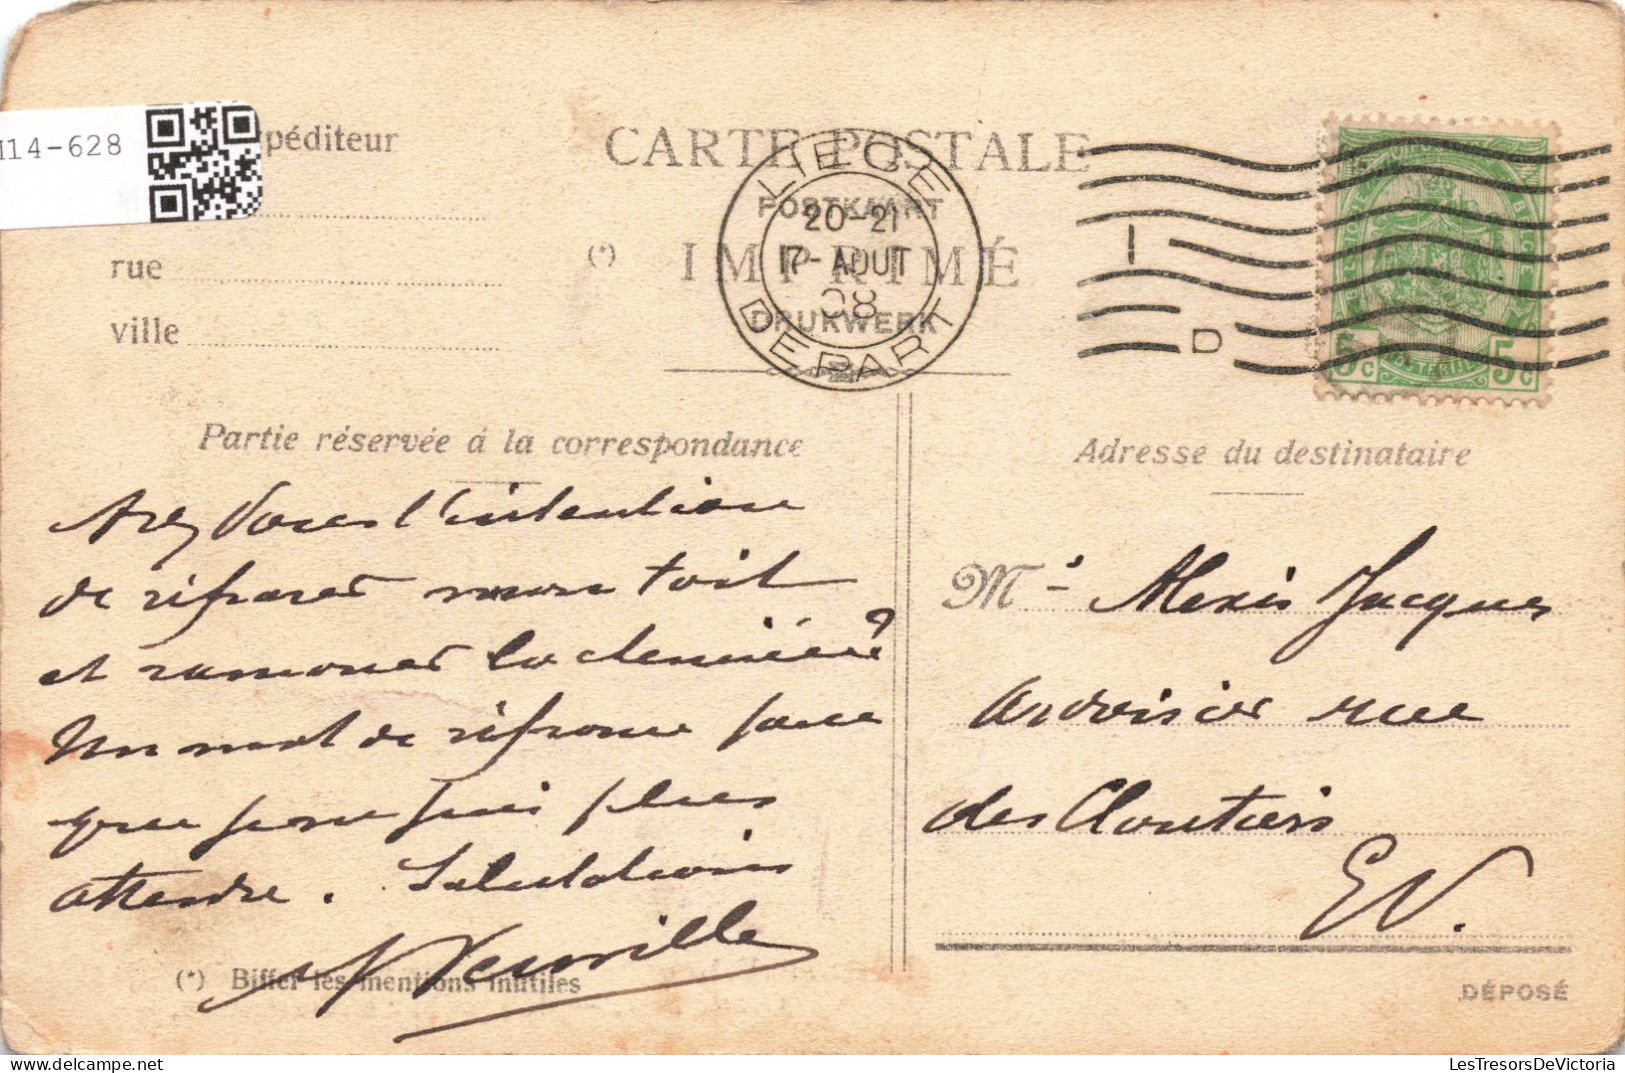 114-628
péditeur
rue
ville
CARTE POSTALE
POSTKAART
(*) IMPRIMÉ
DRUKWERK
LIEGE
20-21
17-AOUT
08
DEPART
D
5c 5c
Partie réservée á la correspondance
Avez Vous l'intention
de réparer mon toit
et ramoner la cheminée?
Un mot de réponse parce
que je ne puis plus
attendre. Salutations
(*) Biffer les mentions inutiles
Adresse du destinataire
Mr Alexis Jacques
ardoisier rue
des Cloutiers
EV.
DÉPOSÉ
LesTresorsDeVictoria